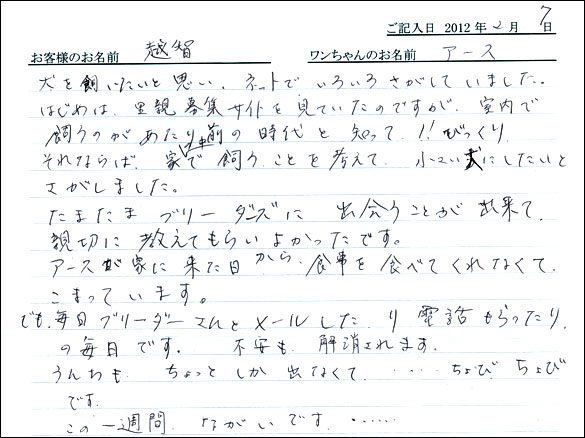 ご記入日 2012年2月7日
お客様のお名前 越智 ワンちゃんのお名前 アース
犬を飼いたいと思い、ネットでいろいろさがしていました。
はじめは、里親募集サイトを見ていたのですが、室内で
飼うのがあたり前の時代と知って!!びっくり
それならば、家中で飼うことを考えて、小さい犬にしたいと
さがしました。
たまたまブリーダーズに出会うことが出来て、
親切に教えてもらいよかったです。
アースが家に来た日から、食事を食べてくれなくて、
こまっています。
でも、毎日ブリーダーさんとメールしたり電話もらったり、
の毎日です。不安も解消されます。
うんちも、ちょっとしか出なくて、・・・・・ちょび、ちょび
です。
この一週間、ながいです。・・・・・・